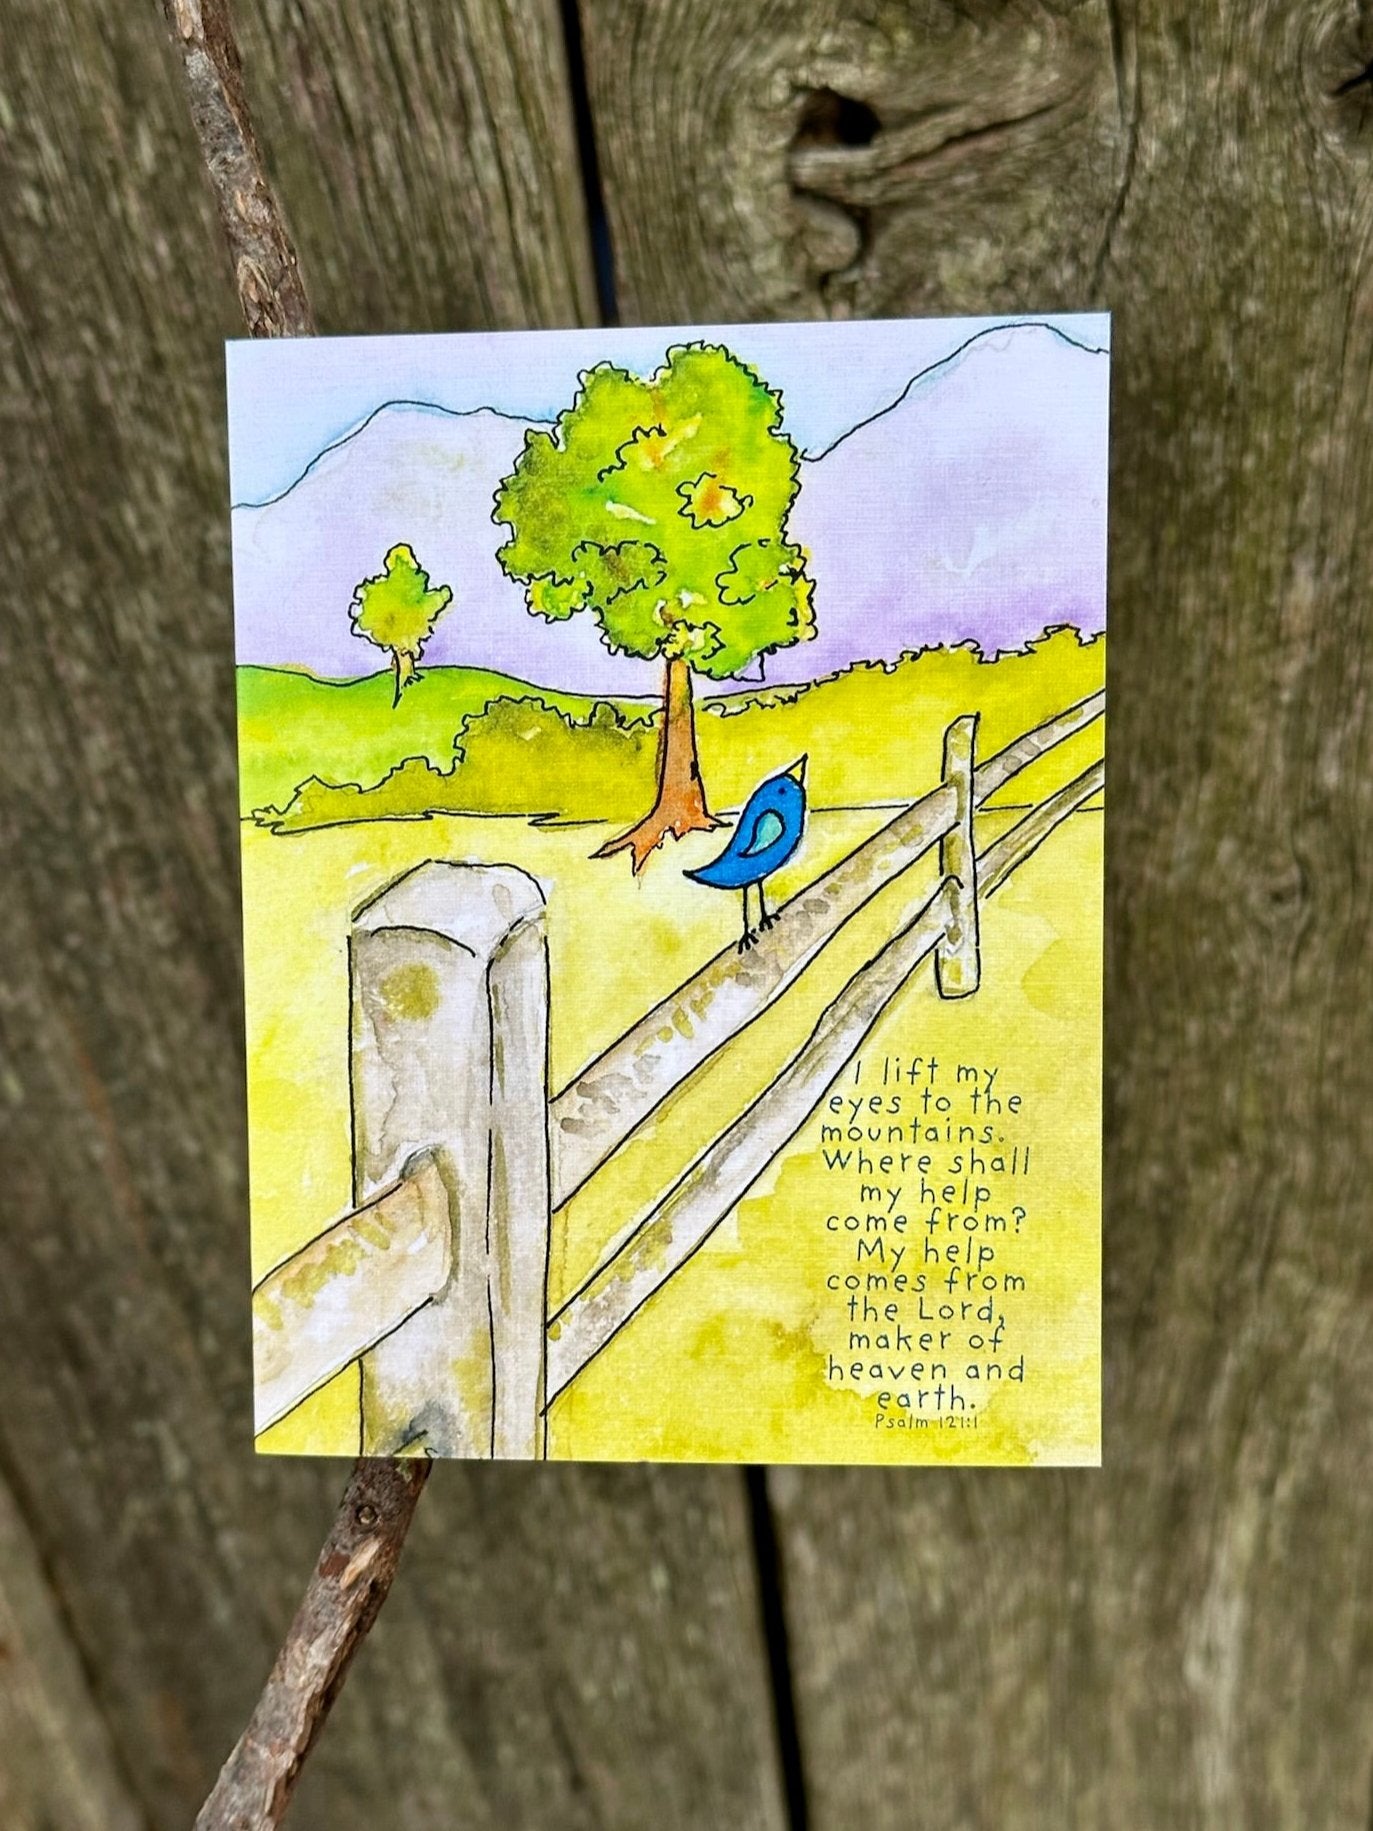 I lift my
eyes to the
mountains.
Where shall
my help
come from?
My help
comes from
the Lord,
maker of
heaven and
earth.
Psalm 121:1